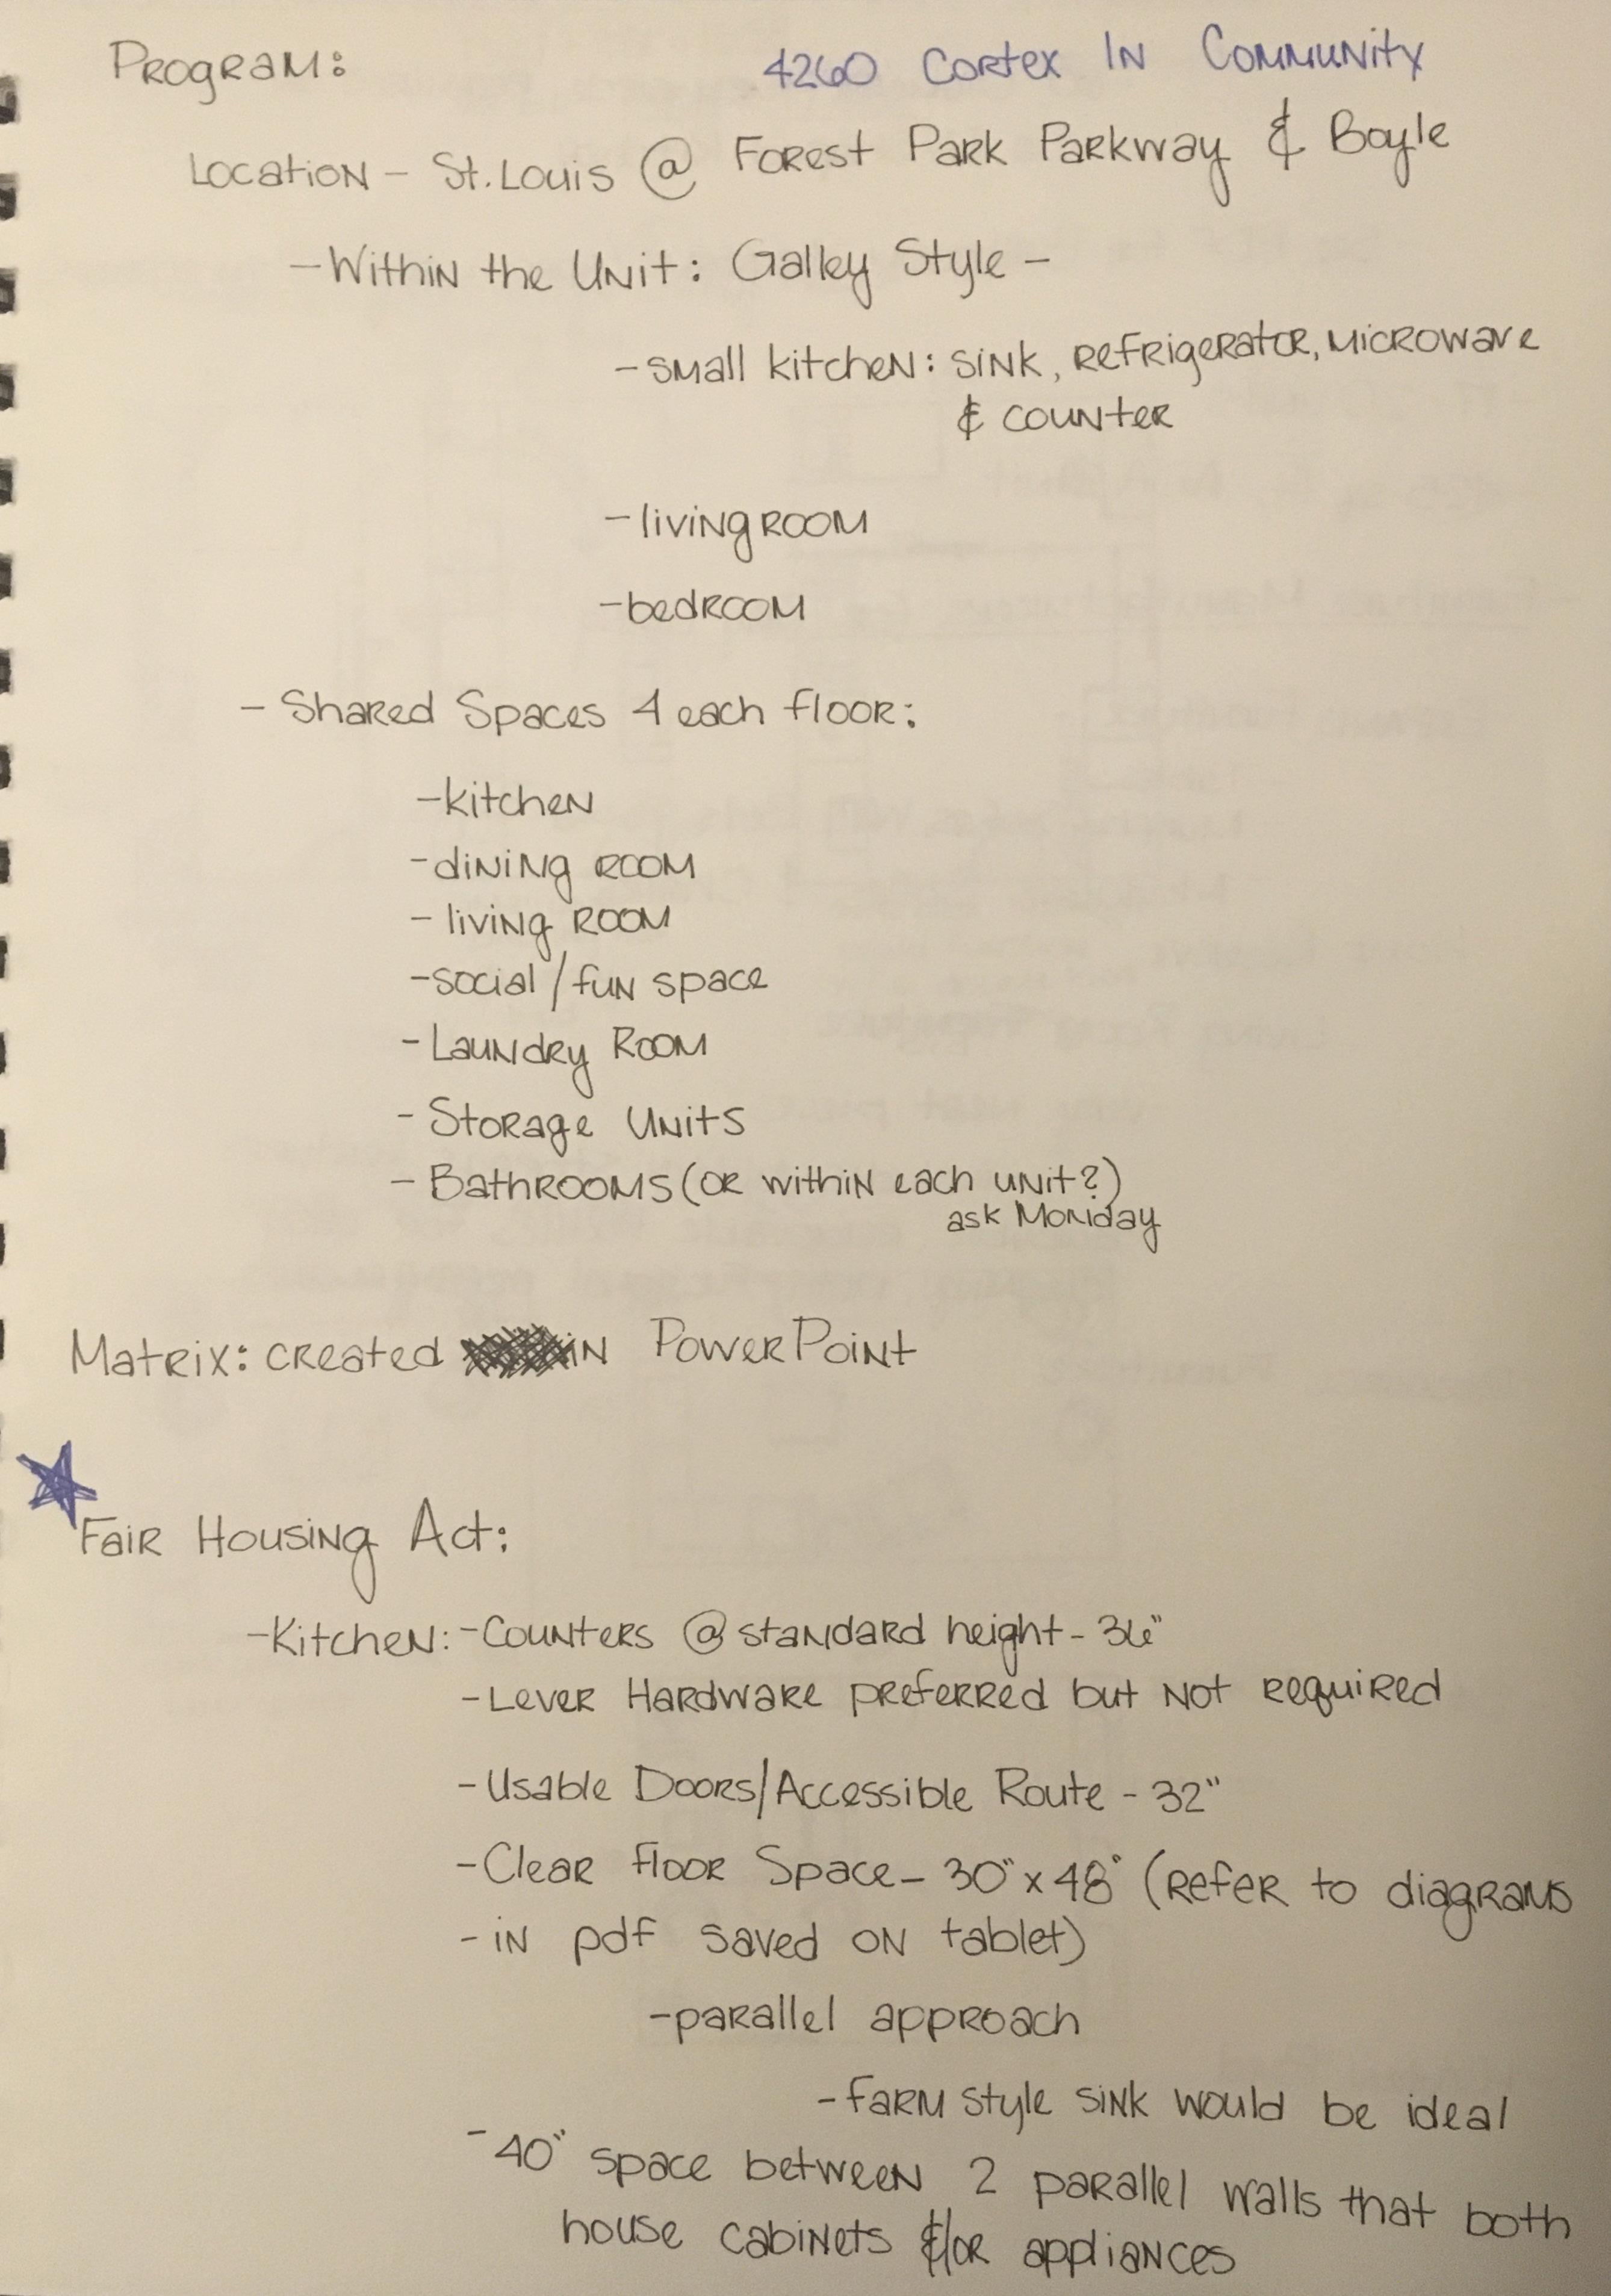 Program:
4260 Cortex In Community
Location - St. Louis @ Forest Park Parkway & Boyle
- Within the Unit: Galley Style -
- small kitchen: sink, refrigerator, microwave
& counter
- livingroom
- bedroom
- Shared Spaces 4 each floor:
- kitchen
- dining room
- living room
- social/fun space
- Laundry Room
- Storage Units
- Bathrooms (or within each unit?)
ask Monday
Matrix: created in PowerPoint
Fair Housing Act:
- Kitchen: - Counters @ standard height - 36"
- Lever Hardware preferred but not required
- Usable Doors/Accessible Route - 32"
- Clear floor Space - 30" x 48" (refer to diagrams
- in pdf saved on tablet)
- parallel approach
- farm style sink would be ideal
- 40" space between 2 parallel walls that both
house cabinets &/or appliances